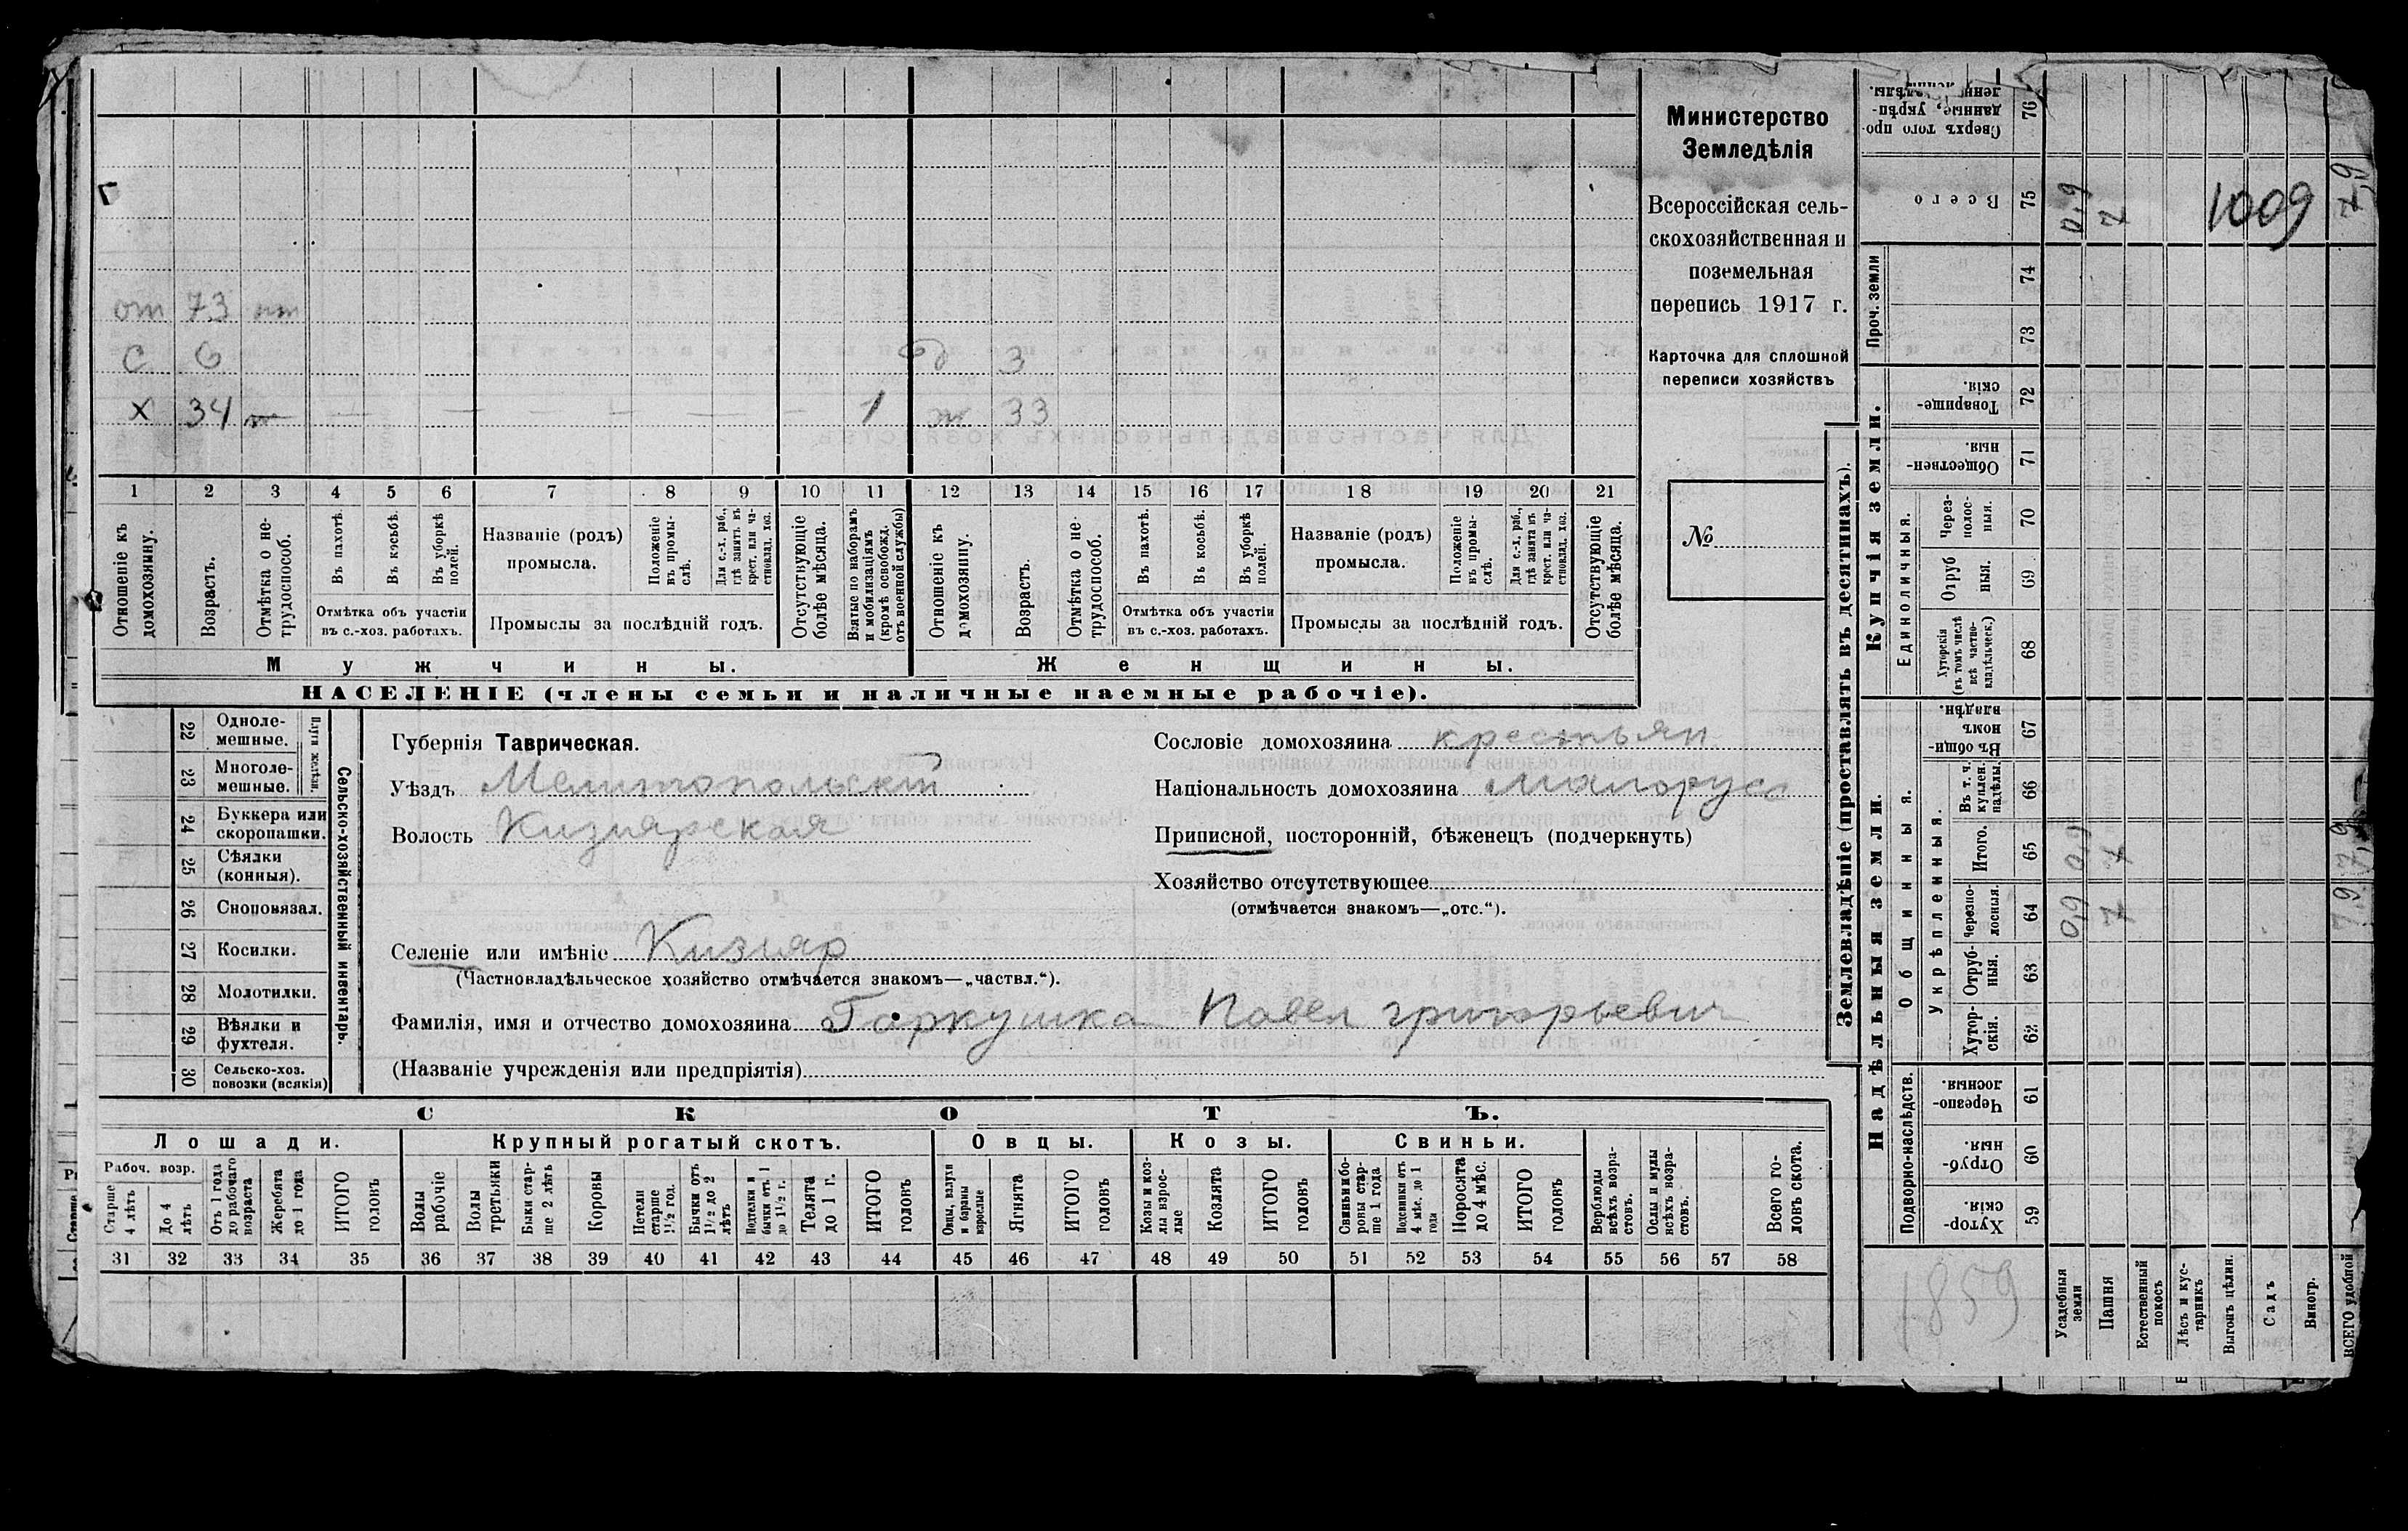 от 73 нт
С 6 д 3
Х 34 — — — — — — 1 ж 33
1 2 3 4 5 6 7 8 9 10 11 12 13 14 15 16 17 18 19 20 21
Отношеніе къ домохозяину.
Возрастъ.
Отмѣтка о не-трудоспособ.
Въ пахотѣ.
Въ косьбѣ.
Въ уборкѣ полей.
Отмѣтка объ участіи
въ с.-хоз. работахъ.
Названіе (родъ)
промысла.
Положеніе въ промы-слѣ.
Для с.-х. раб., гдѣ занятъ въ крест. или ча-стновлад. хоз.
Промыслы за послѣдній годъ.
Отсутствующіе болѣе мѣсяца.
Взятые по наборамъ и мобилизаціямъ (кромѣ освобожд. отъ военной службы)
Отношеніе къ домохозяину.
Возрастъ.
Отмѣтка о не-трудоспособ.
Въ пахотѣ.
Въ косьбѣ.
Въ уборкѣ полей.
Отмѣтка объ участіи
въ с.-хоз. работахъ.
Названіе (родъ)
промысла.
Положеніе въ промы-слѣ.
Для с.-х. раб., гдѣ занята въ крест. или ча-стновлад. хоз.
Промыслы за послѣдній годъ.
Отсутствующіе болѣе мѣсяца.
Мужчины. Женщины.
НАСЕЛЕНІЕ (члены семьи и наличные наемные рабочіе).
Министерство
Земледѣлія
Всероссійская сель-
скохозяйственная и
поземельная
перепись 1917 г.
Карточка для сплошной
переписи хозяйствъ
№
22 Одноле-
мешные.
23 Многоле-
мешные.
Плуги желѣзн.
24 Буккера или
скоропашки.
25 Сѣялки
(конныя).
26 Сноповязал.
27 Косилки.
28 Молотилки.
29 Вѣялки и
фухтеля.
30 Сельско-хоз.
повозки (всякія)
Сельско-хозяйственный инвентарь.
Губернія Таврическая.
Уѣздъ Мелитопольский
Волость Кизиярская
Селеніе или имѣніе Кизияр
(Частновладѣльческое хозяйство отмѣчается знакомъ—„частвл.“).
Фамилія, имя и отчество домохозяина Гаркушка Павел григорьевич
(Названіе учрежденія или предпріятія)
Сословіе домохозяина крестьян
Національность домохозяина малорусс
Приписной, посторонній, бѣженецъ (подчеркнуть)
Хозяйство отсутствующее
(отмѣчается знакомъ—„отс.“).
СКОТЪ.
Лошади. Крупный рогатый скотъ. Овцы. Козы. Свиньи.
Рабоч. возр.
Старше 4 лѣтъ
До 4 лѣтъ
Отъ 1 года до рабочаго возраста
Жеребята до 1 года
ИТОГО головъ
Волы рабочіе
Волы третьяки
Быки стар-ше 2 лѣтъ
Коровы
Нетели старше 1½ год.
Бычки отъ 1½ до 2 лѣтъ
Подтелки и бычки отъ 1 до 1½ г.
Телята до 1 г.
ИТОГО головъ
Овцы, валухи и бараны взрослые
Ягнята
ИТОГО головъ
Козы и коз-лы взрос-лые
Козлята
ИТОГО головъ
Свиньи и бо-ровы стар-ше 1 года
Подсвинки отъ 4 мѣс. до 1 года
Поросята до 4 мѣс.
ИТОГО головъ
Верблюды всѣхъ возра-стовъ.
Ослы и мулы всѣхъ возра-стовъ.
Всего го-ловъ скота.
31 32 33 34 35 36 37 38 39 40 41 42 43 44 45 46 47 48 49 50 51 52 53 54 55 56 57 58
Землевладѣніе (проставлять въ десятинахъ).
Надѣльныя земли. Купчія земли. Проч. земли
Подворно-наслѣдств.
Общинныя.
Укрѣпленныя.
Единоличныя.
Хутор-скія. 59
Отруб-ныя. 60
Черезпо-лосныя. 61
Хутор-скія. 62
Отруб-ныя. 63
Черезпо-лосныя. 64 0,9 7 7,9
Итого. 65 0,9 7 7,9
Въ т. ч. куплен. надѣлы. 66
Въ общин-номъ владѣн. 67
Хуторскія (въ томъ числѣ всѣ частно-владѣльческ.) 68
Отруб ныя. 69
Через-полос-ныя. 70
Обществен-ныя. 71
Товарище-скія. 72
73
74
Всего 75 0,9 7 7,9
1009
Сверхъ того про-данные, укрѣп- 76
1859
Усадебныя земли
Пашня
Естественный покосъ
Лѣсъ и кус-тарникъ
Выгонъ цѣлин.
Садъ
Виногр.
ВСЕГО удобной